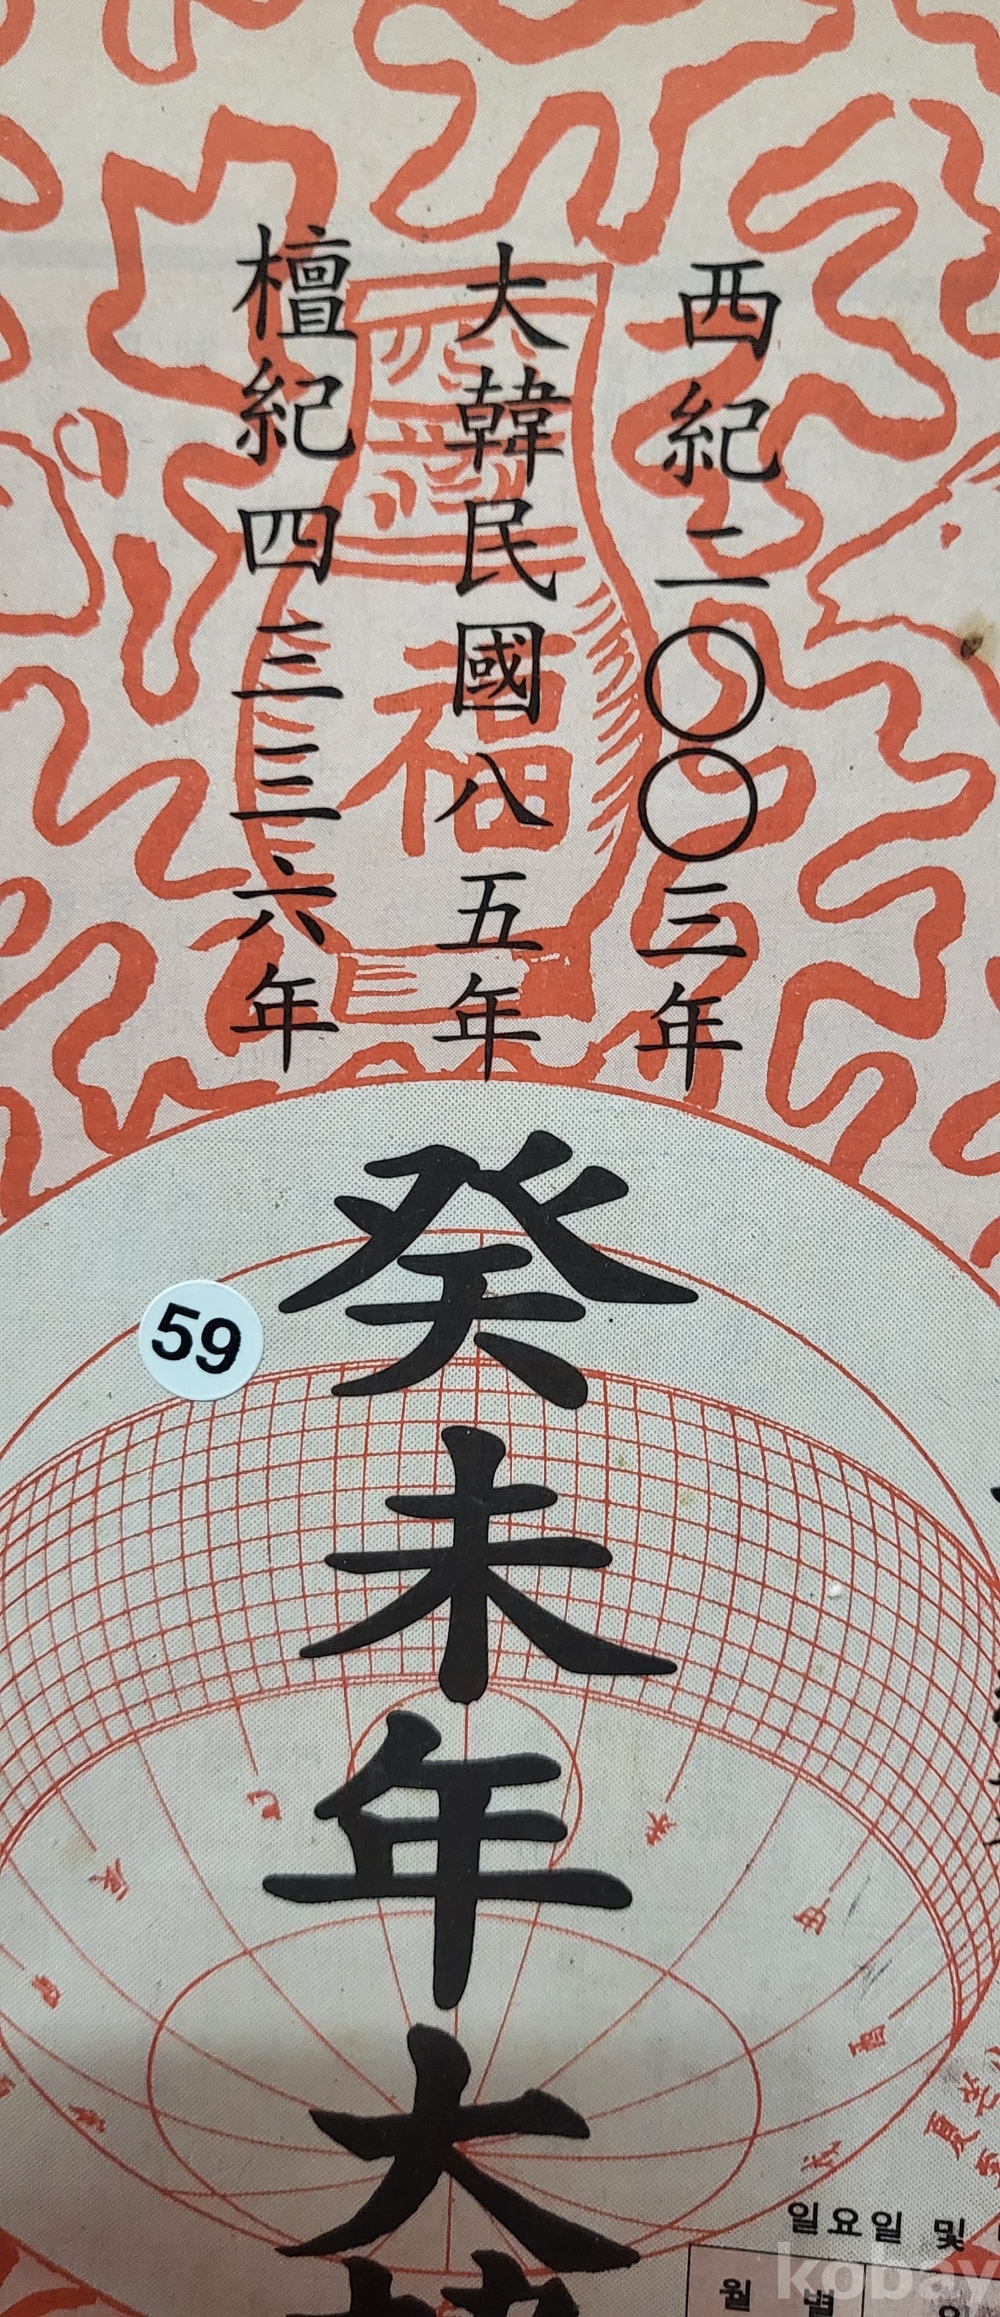 西紀二〇〇三年
大韓民國八五年
檀紀四三三六年
福
癸未年大韓
59
일요일 및
월 별
kobay